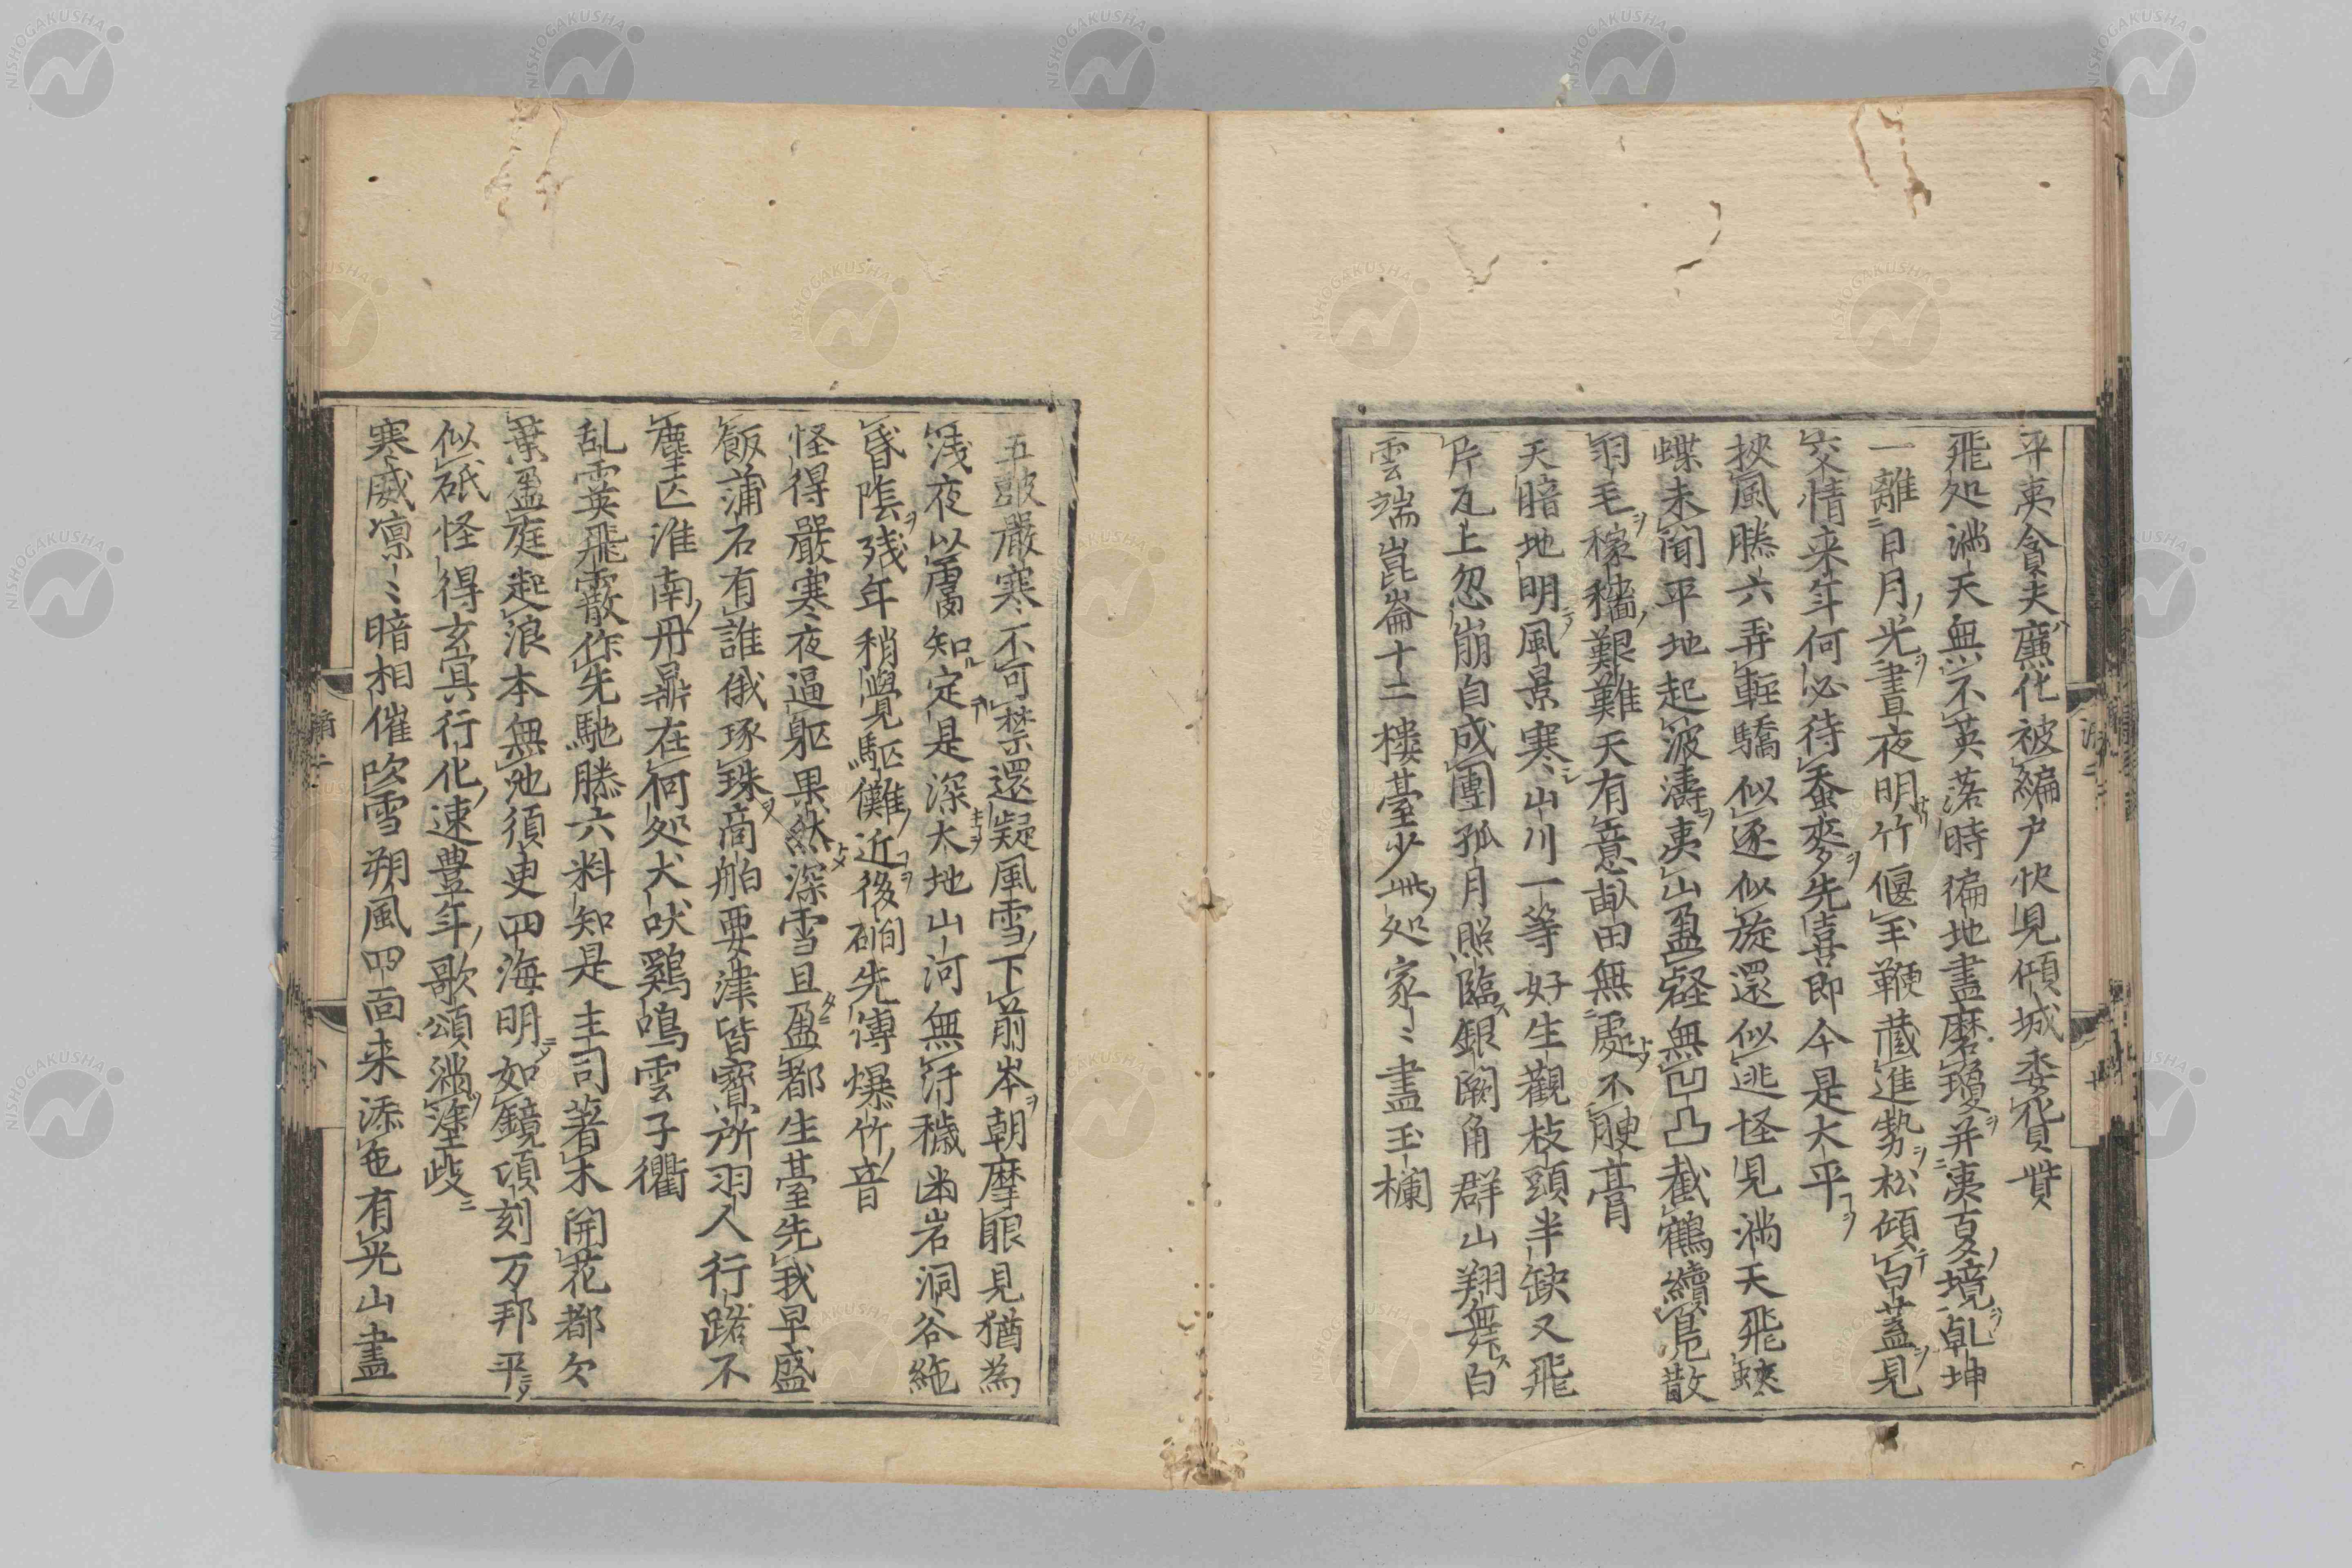 平夷貪夫廉化被編户快見傾城委貨贄
飛処満天無不英落時徧地盡磨瓊并夷夏境乹坤
一離日月光晝夜明竹偃玉鞭藏進勢松傾白蓋見
交情来年何必待蚕麥先喜即今是太平
挾風滕六弄輕驕似逐似旋還似逃怪見満天飛蛺
蝶未聞平地起波濤夷山盈壑無凹凸截鶴續鳧散
羽毛稼穡艱難天有意畝田無處不腴膏
天暗地明風景寒山川一等好生觀枝頭半缺又飛
片瓦上忽崩自成團孤月照臨銀闕角群山翔舞白
雲端崑崙十二樓臺少此処家〻盡玉欄
五鼓嚴寒不可禁還疑風雪下前岑朝摩眼見猶為
浅夜以膚知定是深大地山河無汙穢幽岩洞谷絶
昏陰残年稍覺駈儺近後硐先傳爆竹音
怪得嚴寒夜逼軀果然深雪且盈都生臺先我早盛
飯蒲石有誰俄琢珠商舶要津皆寳所羽人行路不
塵区淮南丹鼎在何処犬吠鷄鳴雲子衢
乱雲英飛霰作先馳滕六料知是主司著木開花都欠
葉盈庭起浪本無池須臾四海明如鏡頃刻万邦平
似砥怪得玄冥行化速豊年歌頌満塗歧
寒威凛〻暗相催吹雪朔風四面来添色有光山盡